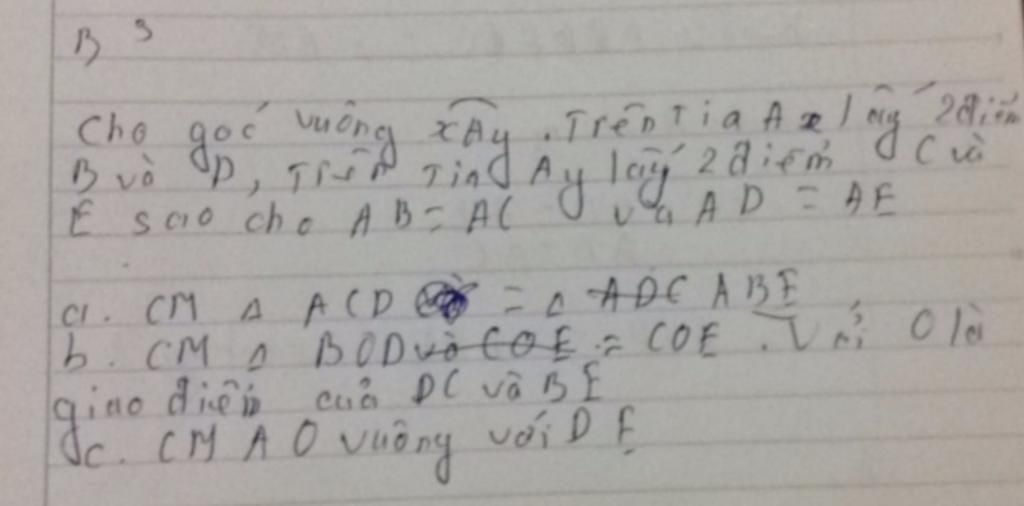 B 3
Cho goć vuông xAy. Trên Tia Ax lấy 2 điểm
B và D, Trên Tia Ay lấy 2 điểm C và
E sao cho AB = AC và AD = AE
a. CM Δ ACD = Δ ADC ABE
b. CM Δ BOD và COE = COE. Với O là
giao điểm của DC và BE
c. CM AO vuông với DE